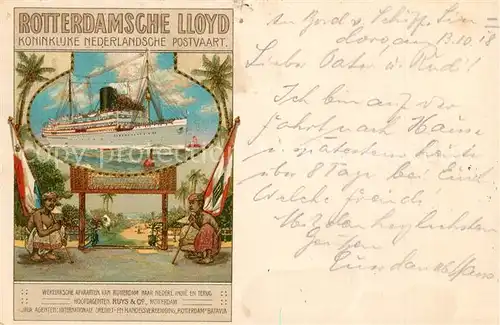 ROTTERDAMSCHE LLOYD
KONINKLIJKE NEDERLANDSCHE POSTVAART.
WEKELIJKSCHE AFVAARTEN VAN ROTTERDAM NAAR NEDERL. INDIË EN TERUG
HOOFDAGENTEN RUYS & Co., ROTTERDAM
JAVA AGENTEN: INTERNATIONALE CREDIET- EN HANDELSVEREENIGING „ROTTERDAM" BATAVIA
An Bord
13.10.
Liebe
Ich bin auf der
Fahrt nach Hause
u. spätestens heute
über 8 Tage bei Euch
Welche Freude!
Mit den herzlichsten
Grüßen